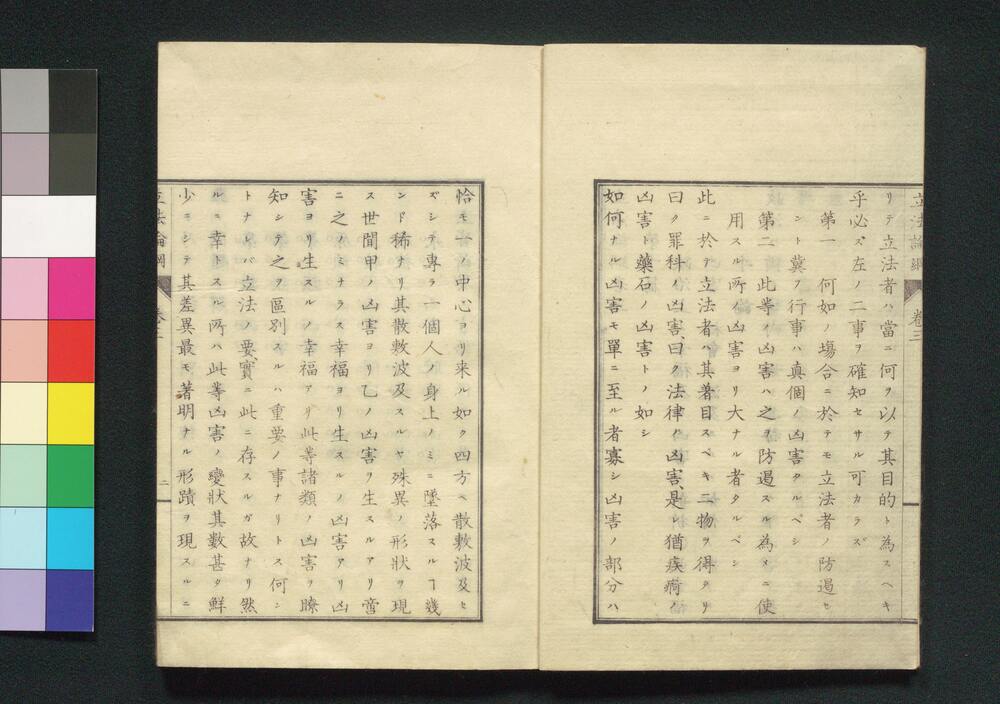 立法論綱
卷三
リテ立法者ハ當ニ何ヲ以テ其目的ト為スヘキ
乎必ズ左ノ二事ヲ確知セサル可カラズ
第一 何如ノ塲合ニ於テモ立法者ノ防遏セ
ント冀フ行事ハ真個ノ凶害タルベシ
第二 此等ノ凶害ハ之ヲ防遏スル為メニ使
用スル所ノ凶害ヨリ大ナル者タルベシ
此ニ於テ立法者ハ其著目スベキ二物ヲ得タリ
曰ク罪科ノ凶害、曰ク法律ノ凶害是レ猶疾痾ノ
凶害ト藥石ノ凶害トノ如シ
如何ナル凶害モ單ニ至ル者寡シ凶害ノ部分ハ
恰モ一ノ中心ヨリ来ル如ク四方ヘ散敷波及セ
ズシテ專ラ一個人ノ身上ノミニ墜落スルヿ幾
ンド稀ナリ其散敷波及スルヤ殊異ノ形狀ヲ現
ス世間甲ノ凶害ヨリ乙ノ凶害ヲ生スルアリ啻
ニ之ノミナラス幸福ヨリ生スルノ凶害アリ凶
害ヨリ生スルノ幸福アリ此等諸類ノ凶害ヲ瞭
知シテ之ヲ區別スルハ重要ノ事ナリトス何シ
トナレバ立法ノ要、實ニ此ニ存スルガ故ナリ然
ルニ幸トスル所ハ此等凶害ノ變狀其數甚タ鮮
少ニシテ其差異最モ著明ナル形蹟ヲ現スルニ
立法論綱
二